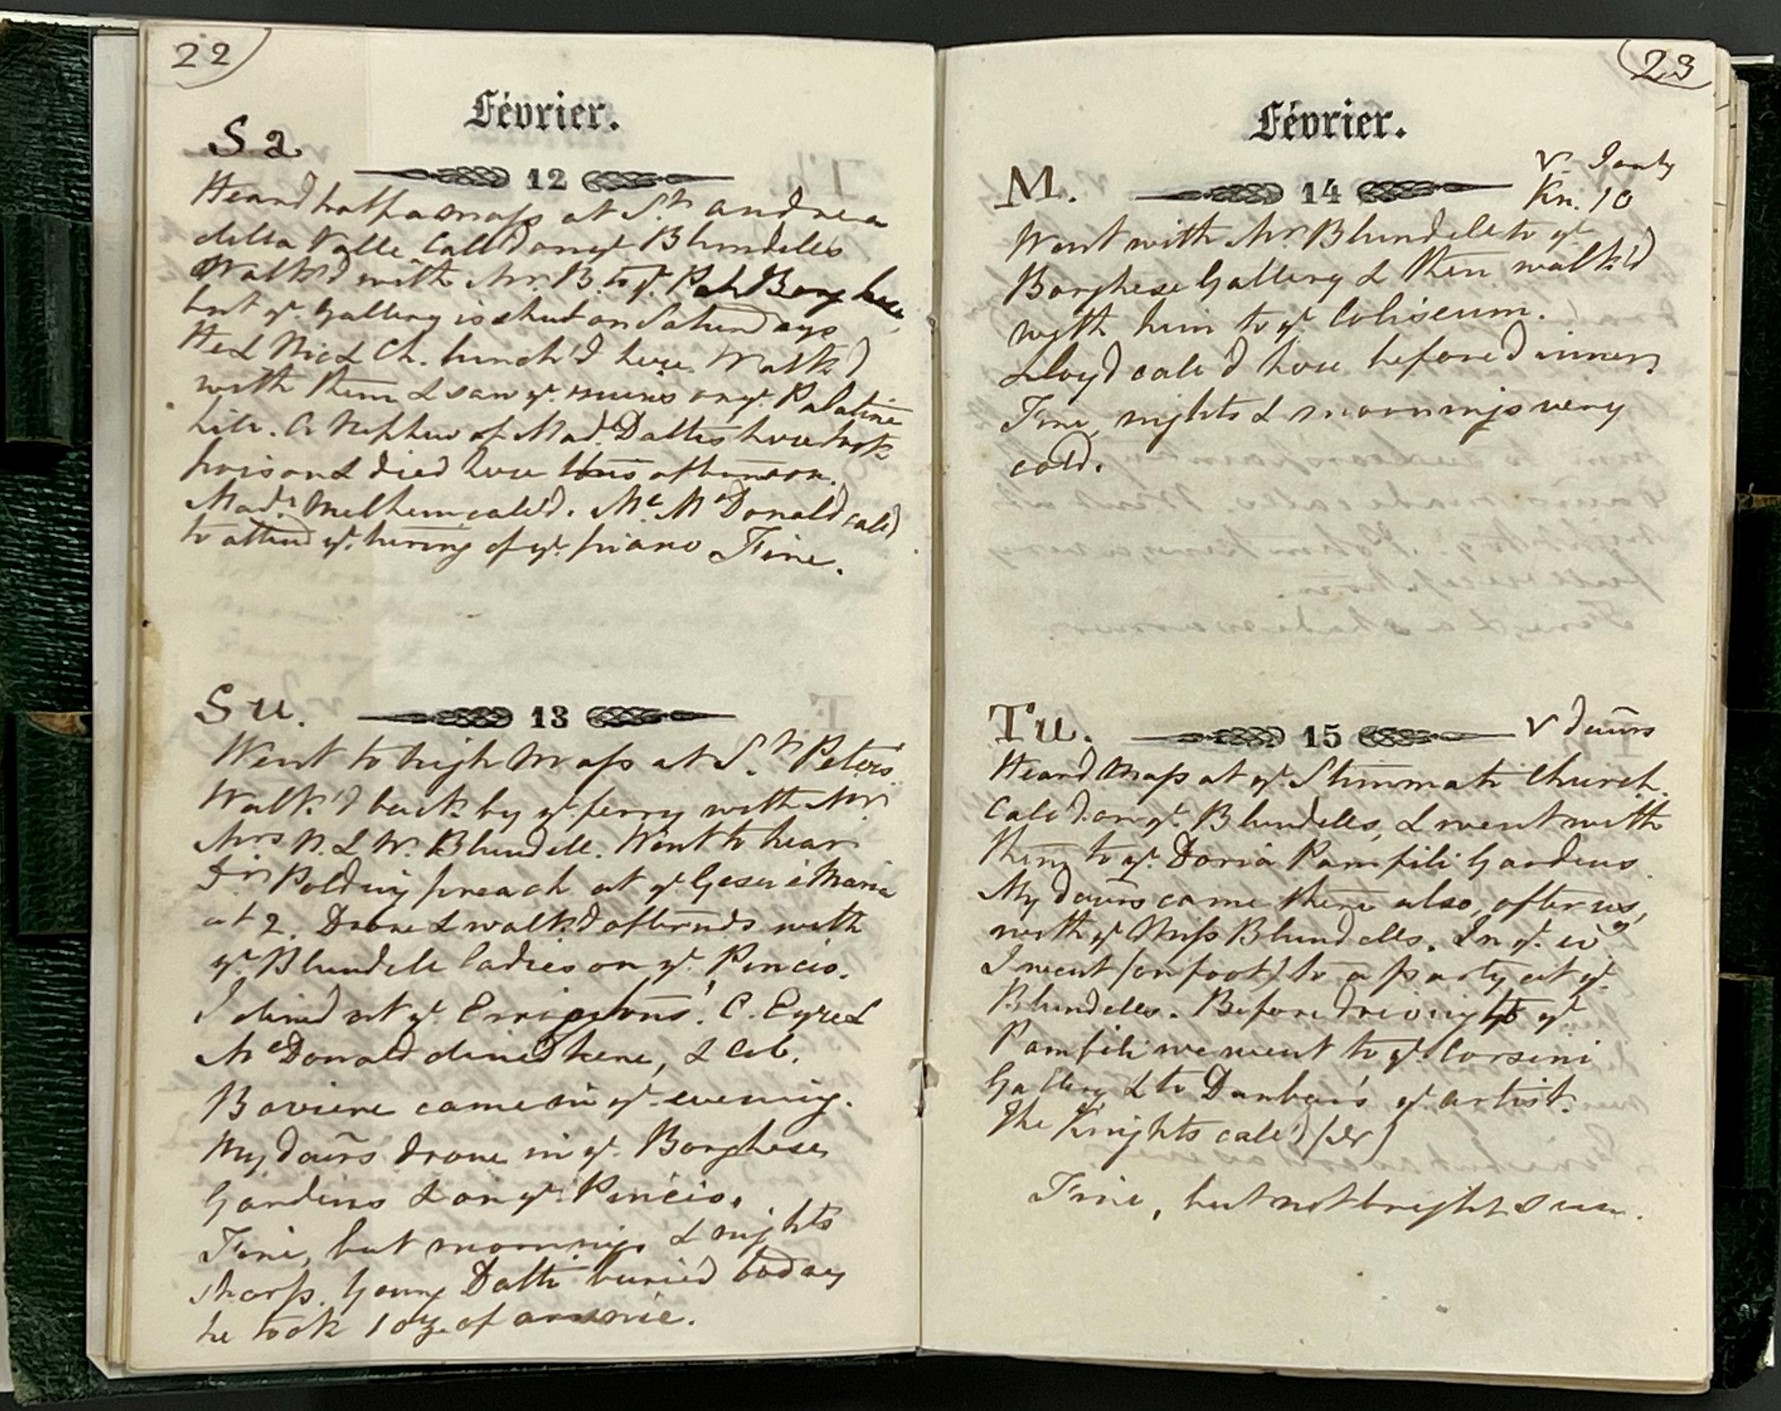 22
Février.
Sa
12
Heard half a mass at St. Andrea
della Valle. Call'd on ye. Blundells
Walk'd with Mr. B. to ye. Pal. Borghese,
but ye. Gallery is shut on Saturdays
He & Nic & Ch. lunch'd here. Walk'd
with them & saw ye. ruins on ye. Palatine
hill. A Nephew of Mad. Dalti's here took
poison & died here this afternoon.
Mad. call'd. Mc. McDonald call'd
to attend ye. hiring of ye. piano Fine.
Su.
13
Went to high Mass at St. Peter's
Walk'd back by ye. ferry with Mr.
Mrs. N. & W. Blundell. Went to hear
Dr. Polding preach at ye Gesu e Maria
at 2. Drove & walk'd afternds with
ye. Blundell ladies on ye. Pincio.
I dined at ye. Erringtons'. C. Eyre &
McDonald dined here, & Col.
Baviere came in ye. evening.
My daũrs drove in ye. Borghese
Gardens & on ye. Pincio.
Fine, but mornings & nights
sharp. Young Dalti buried today
he took 1 oz. of arsenic.
23
Février.
M.
14
V.
Kn. 10
Went with Mr. Blundell to ye
Borghese Gallery & then walk'd
with him to ye. Coliseum.
Lloyd call'd here before dinner.
Fine, nights & mornings very
cold.
Tu.
15
V daũrs
Heard Mass at ye. Stimmati Church.
Call'd on ye. Blundells, & went with
them to ye. Doria Pamfili Gardens.
My daũrs came there also, after us,
with ye Miss Blundells. In ye. evg
I went (on foot) to a party at ye.
Blundells. Before driving to ye
Pamfili we went to ye. Corsini
Gallery & to Dunbar's ye. artist.
The Knights call'd
Fine, but not bright sun.